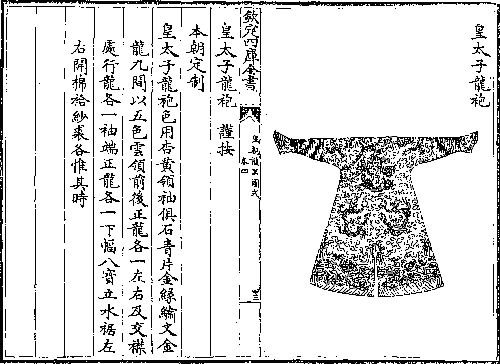 皇太子龍袍
欽定四庫全書
皇朝禮器圖式
卷四
皇太子龍袍 謹按
本朝定制
皇太子龍袍色用杏黄領袖俱石青片金緣繡文金
龍九間以五色雲領前後正龍各一左右及交襟
處行龍各一袖端正龍各一下幅八寶立水裾左
右開棉袷紗裘各惟其時